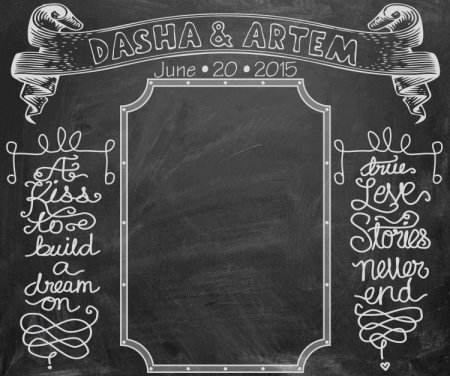 DASHA & ARTEM
June • 20 • 2015
A
Kiss
to
build
a
dream
on
true
Love
Stories
never
end